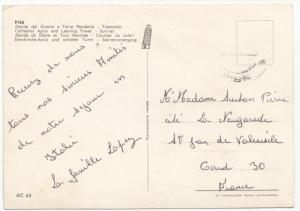 PISA
Abside del Duomo e Torre Pendente - Tramonto
Cathedral Apsis and Leaning Tower - Sun-set
Abside du Dôme et Tour Penchée - Coucher du soleil
Domkirche-Apsis und schiefer Turm - Sonnenuntergang
Recevez de nous
tous nos sincères Amitiés
de notre séjour en
Italie
La famille Lopez
AC 43
M. Madame Pierre
cité La
St Jean de
Gard 30
France